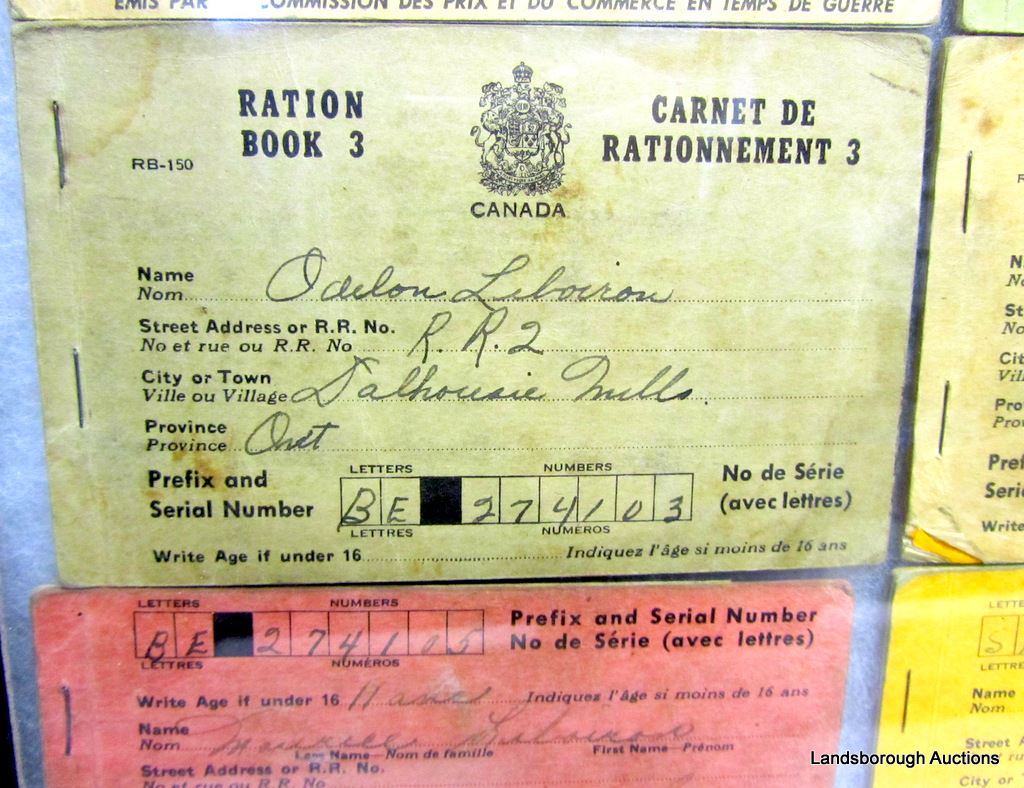 ÉMIS PAR COMMISSION DES PRIX ET DU COMMERCE EN TEMPS DE GUERRE
RATION BOOK 3
CARNET DE RATIONNEMENT 3
RB-150
CANADA
Name
Nom Odelon Leboiron
Street Address or R.R. No.
No et rue ou R.R. No R.R.2
City or Town
Ville ou Village Dalhousie Mills.
Province
Province Ont
Prefix and Serial Number
LETTERS NUMBERS
BE 274103
LETTRES NUMÉROS
No de Série (avec lettres)
Write Age if under 16 Indiquez l'âge si moins de 16 ans
LETTERS NUMBERS
BE 274105
LETTRES NUMÉROS
Prefix and Serial Number
No de Série (avec lettres)
Write Age if under 16 11 Indiquez l'âge si moins de 16 ans
Name
Nom
Last Name—Nom de famille First Name—Prénom
Street Address or R.R. No.
No et rue ou R.R. No
Write
Name
Nom
Street
City or
Landsborough Auctions